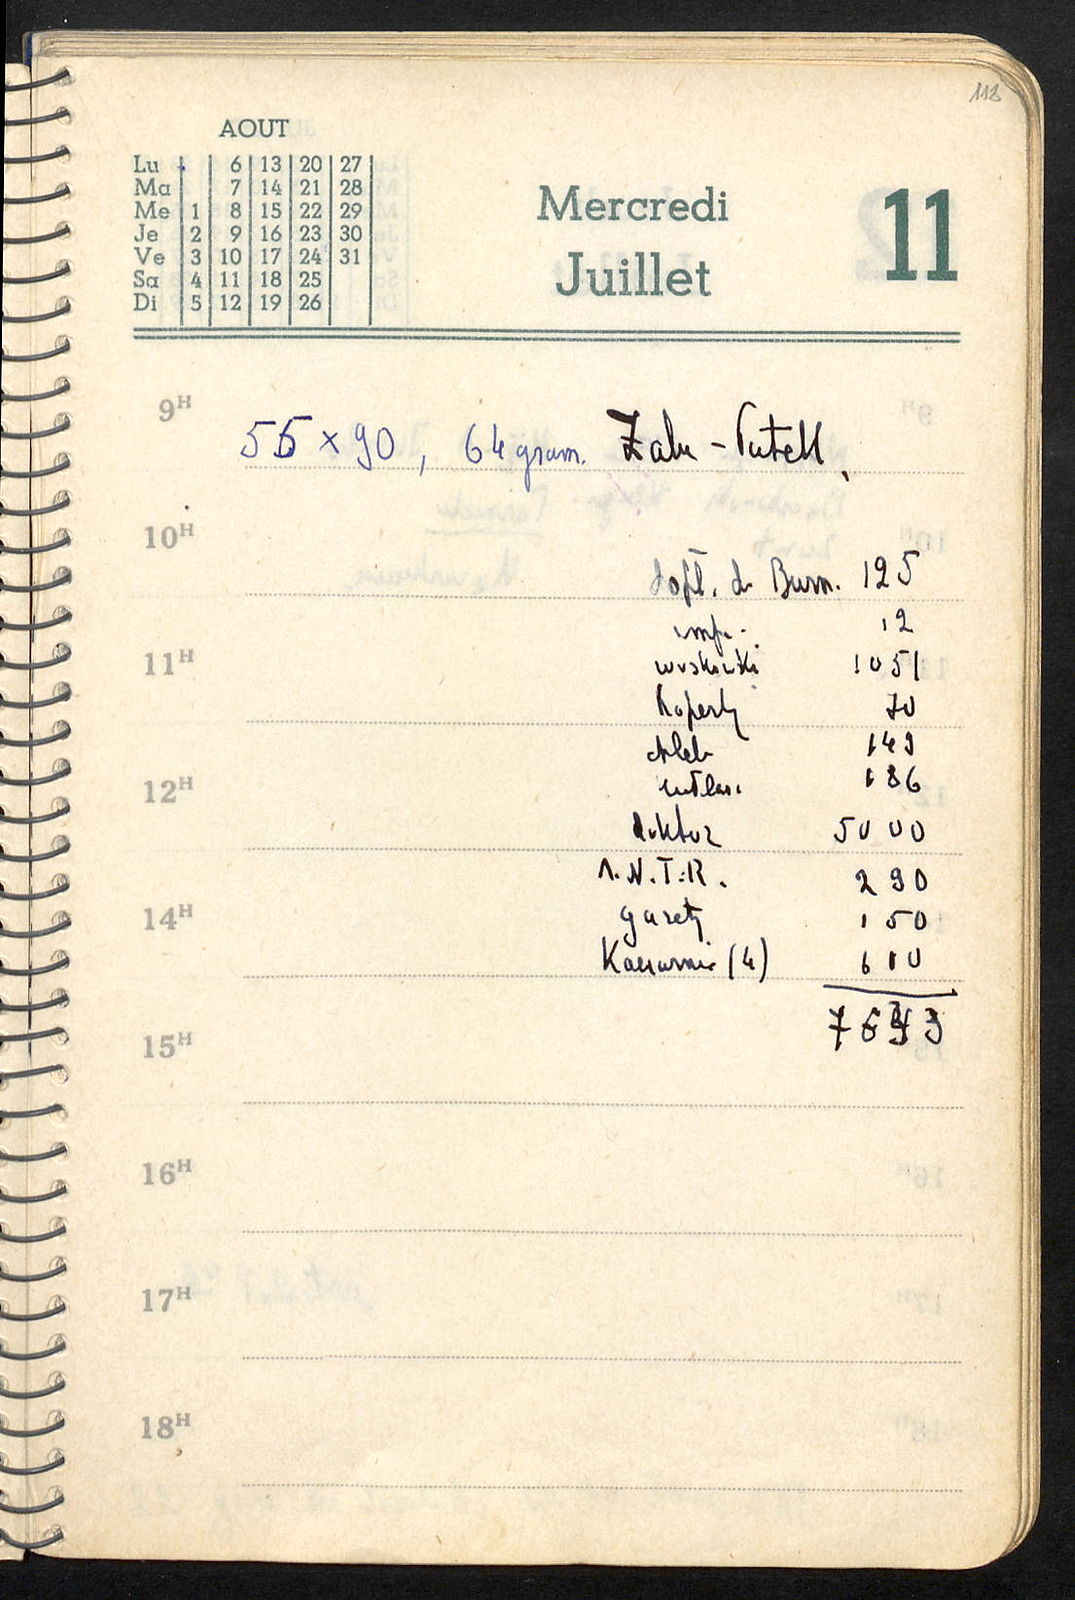 112
AOUT
Lu 6 13 20 27
Ma 7 14 21 28
Me 1 8 15 22 29
Je 2 9 16 23 30
Ve 3 10 17 24 31
Sa 4 11 18 25
Di 5 12 19 26
Mercredi 11
Juillet
9H
55 x 90, 64 gram.
10H
125
12
11H
1051
Koperty 70
chleb 149
12H
186
doktor 5000
290
14H
gazety 150
(4) 610
15H
16H
17H
18H